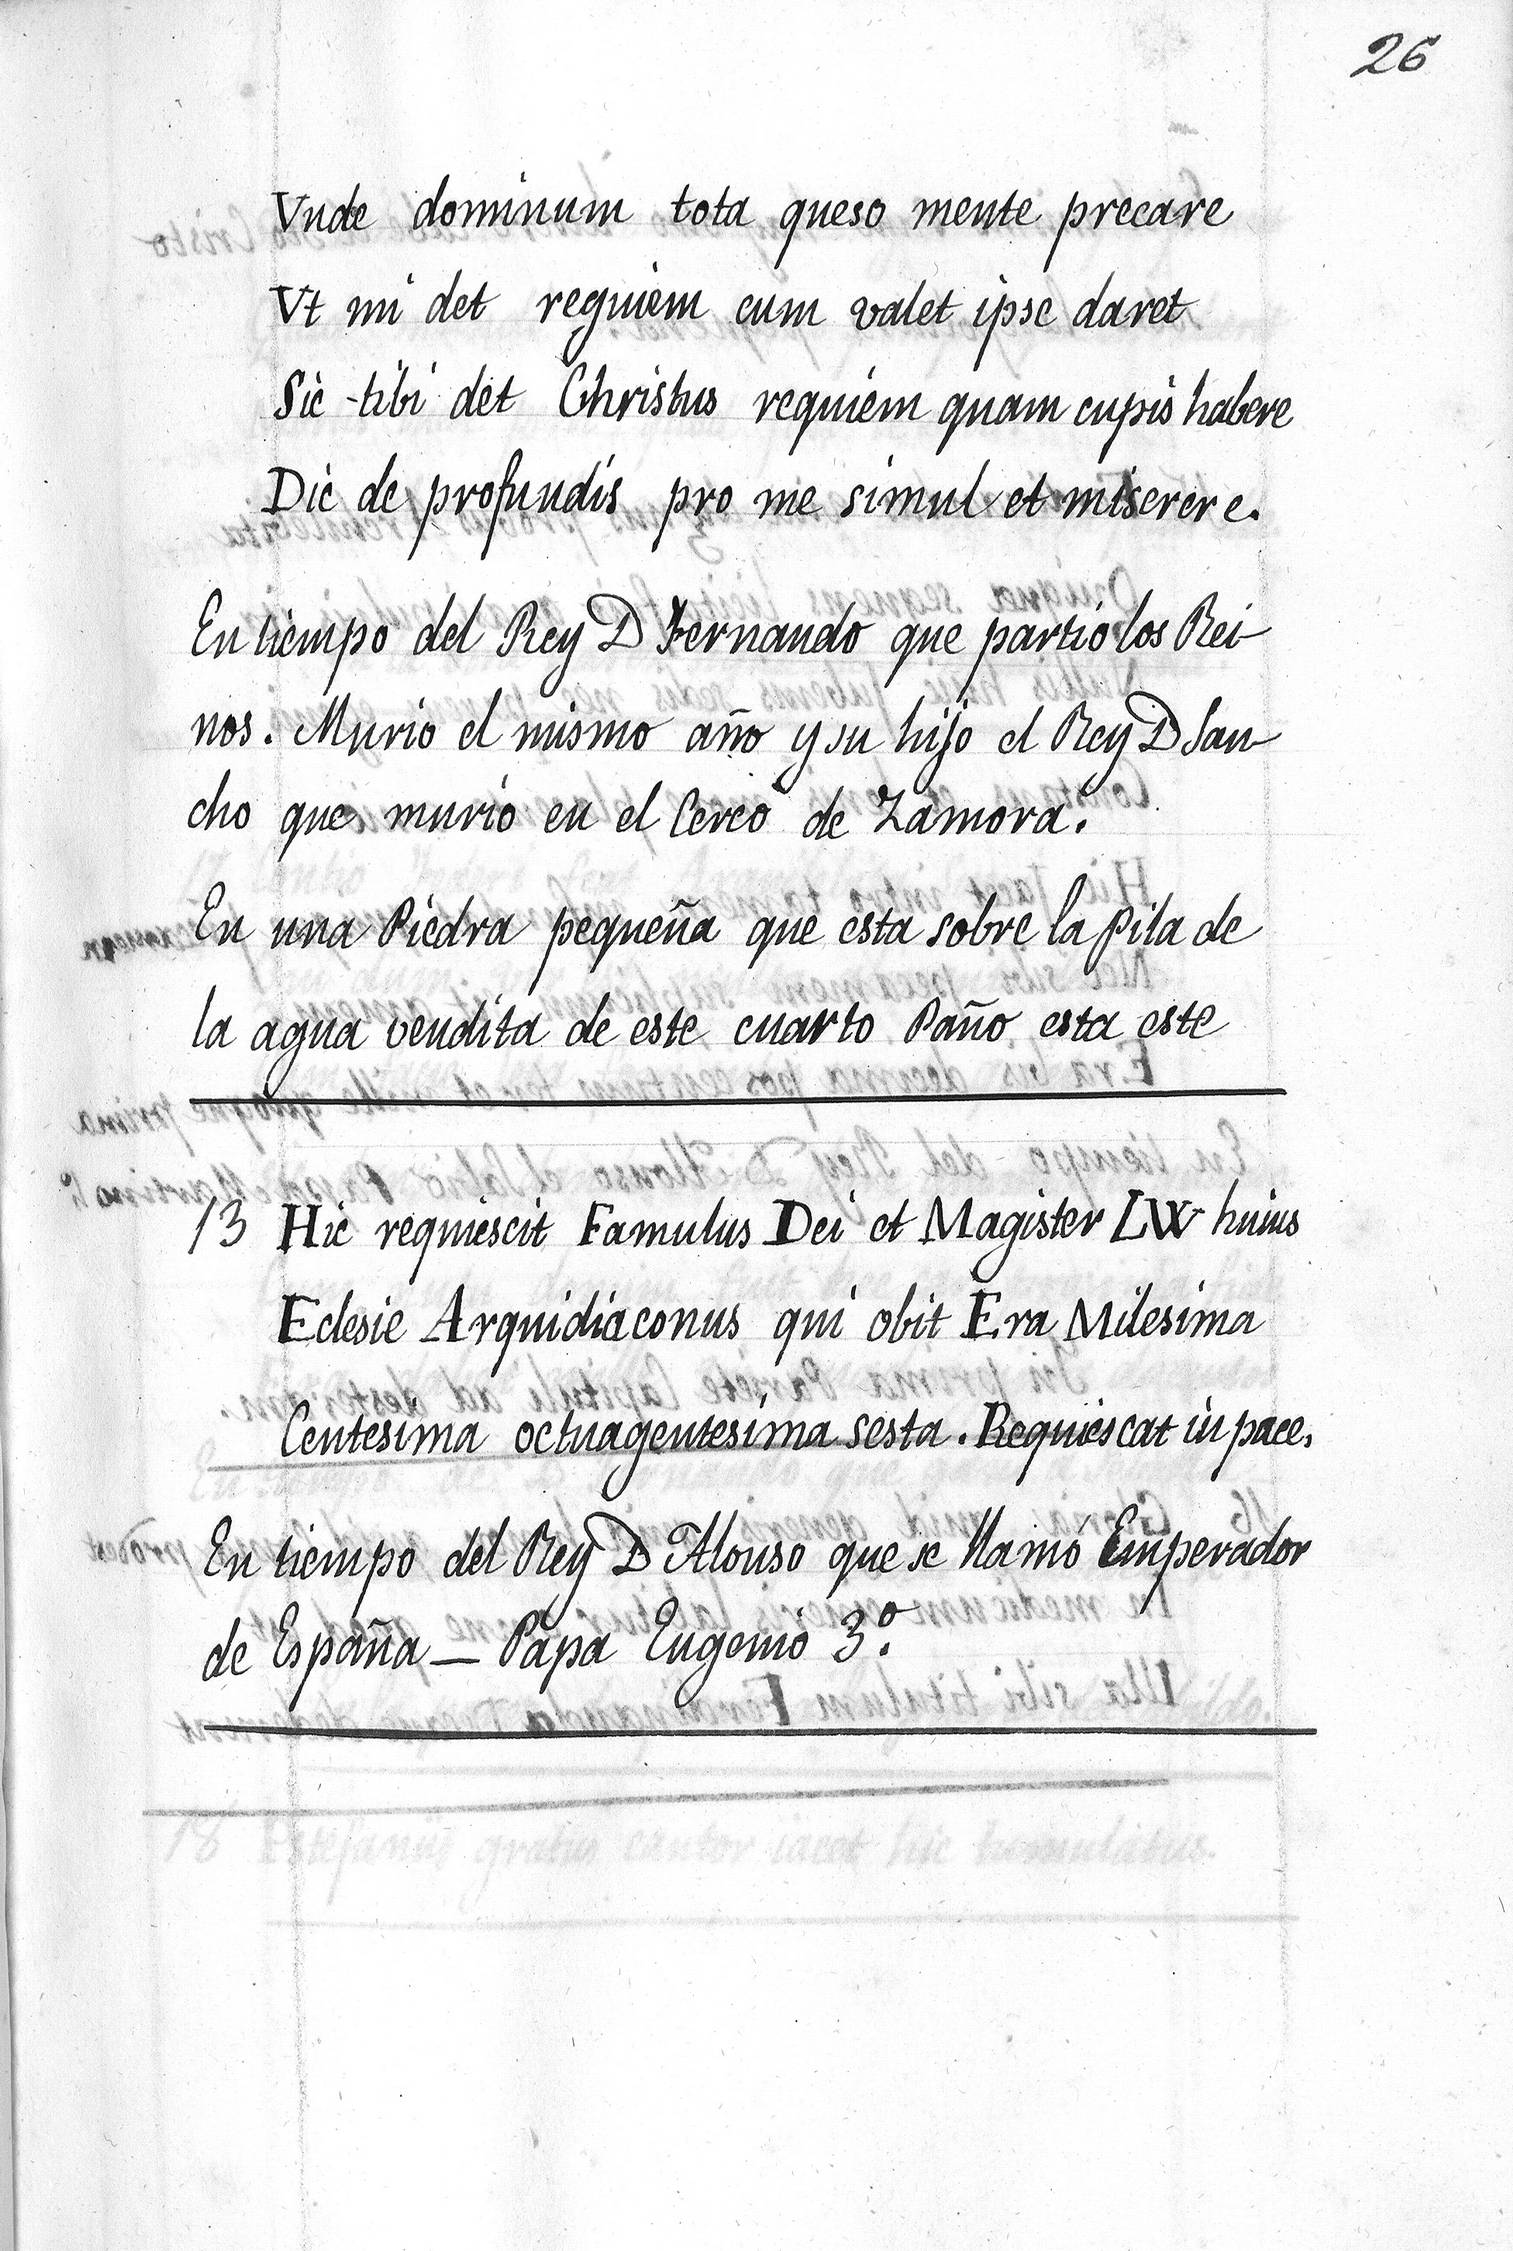 26
Vnde dominum tota queso mente precare
Vt mi det requiem cum valet ipse daret
Sic tibi det Christus requiem quam cupis habere
Dic de profundis pro me simul et miserere.
En tiempo del Rey D Fernando que partio los Rei-
nos. Murio el mismo año y su hijo el Rey D San-
cho que murio en el Cerco de Zamora.
En una Piedra pequeña que esta sobre la Pila de
la agua vendita de este cuarto Paño esta este
13 Hic requiescit Famulus Dei et Magister LW huius
Eclesie Arquidiaconus qui obit Era Milesima
Centesima octuagentesima sesta. Requiescat in pace.
En tiempo del Rey D Alonso que se llamó Emperador
de España — Papa Eugenio 3º.
18 Estefanus gratus cantor iacet hic tumulatus.